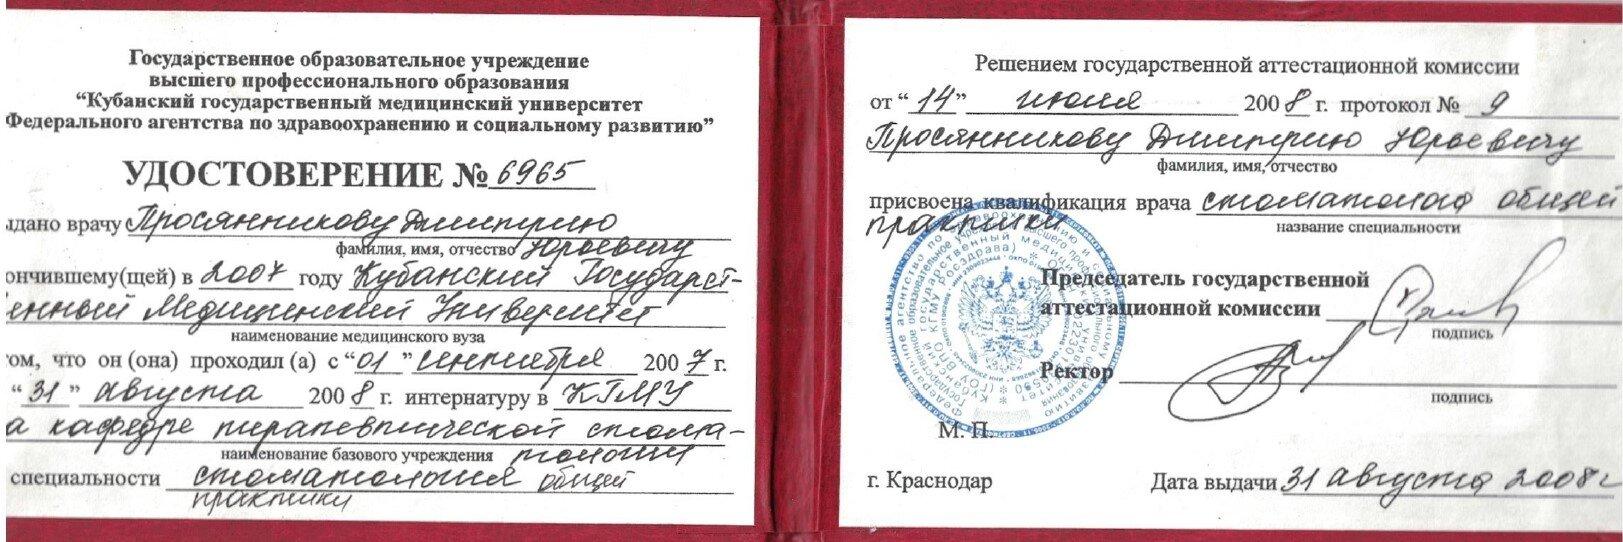 Государственное образовательное учреждение
высшего профессионального образования
“Кубанский государственный медицинский университет
Федерального агентства по здравоохранению и социальному развитию”
УДОСТОВЕРЕНИЕ № 6965
ыдано врачу Просянникову Дмитрию
фамилия, имя, отчество Юрьевичу
ончившему(щей) в 2007 году Кубанский Государст-
венный Медицинский Университет
наименование медицинского вуза
том, что он (она) проходил (а) с “01” сентября 2007 г.
“31” августа 2008 г. интернатуру в КГМУ
а кафедре терапевтической стома-
наименование базового учреждения тологии
специальности стоматология общей
практики
Решением государственной аттестационной комиссии
от “14” июля 2008 г. протокол № 9
Просянникову Дмитрию Юрьевичу
фамилия, имя, отчество
присвоена квалификация врача стоматолога общей
название специальности
практики
Председатель государственной
аттестационной комиссии
подпись
Ректор
подпись
М. П.
г. Краснодар Дата выдачи 31 августа 2008 г